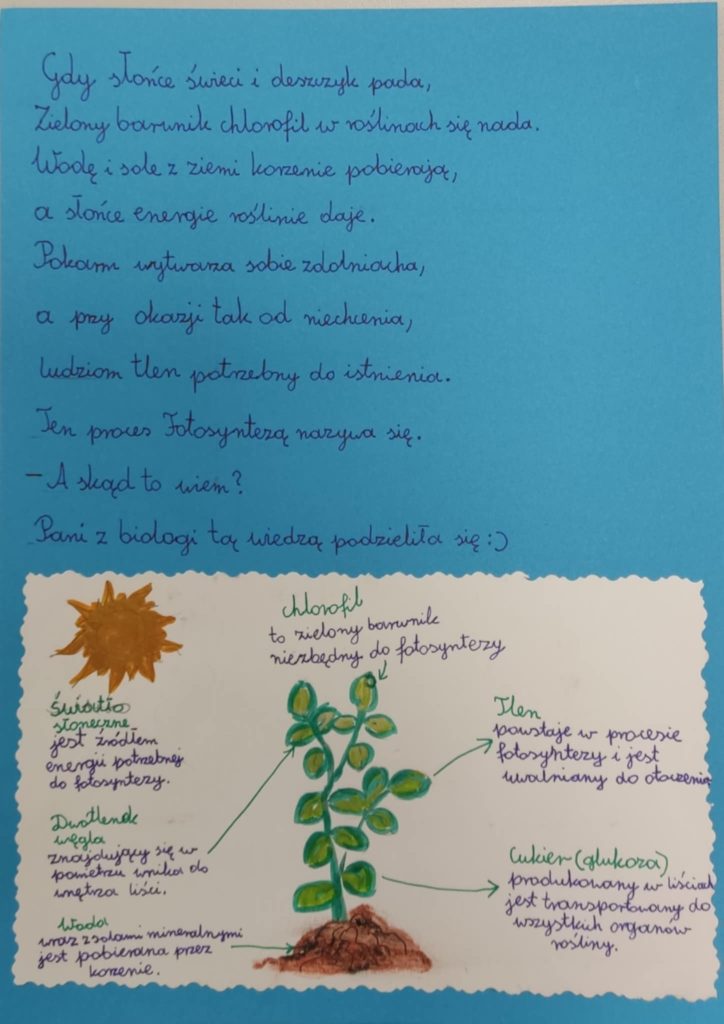 Gdy słońce świeci i deszczyk pada,
Zielony barwnik chlorofil w roślinach się nada.
Wodę i sole z ziemi korzenie pobierają,
a słońce energie roślinie daje.
Pokarm wytwarza sobie zdolniacha,
a przy okazji tak od niechcenia,
ludziom tlen potrzebny do istnienia.
Ten proces Fotosyntezą nazywa się.
- A skąd to wiem?
Pani z biologi tą wiedzą podzieliła się :)
chlorofil
to zielony barwnik
niezbędny do fotosyntezy
Światło
słoneczne
jest źródłem
energii potrzebnej
do fotosyntezy.
Dwutlenek
węgla
znajdujący się w
powietrzu wnika do
wnętrza liści.
Woda
wraz z solami mineralnymi
jest pobierana przez
korzenie.
Tlen
powstaje w procesie
fotosyntezy i jest
uwalniany do otoczenia
Cukier (glukoza)
produkowany w liściach
jest transportowany do
wszystkich organów
rośliny.